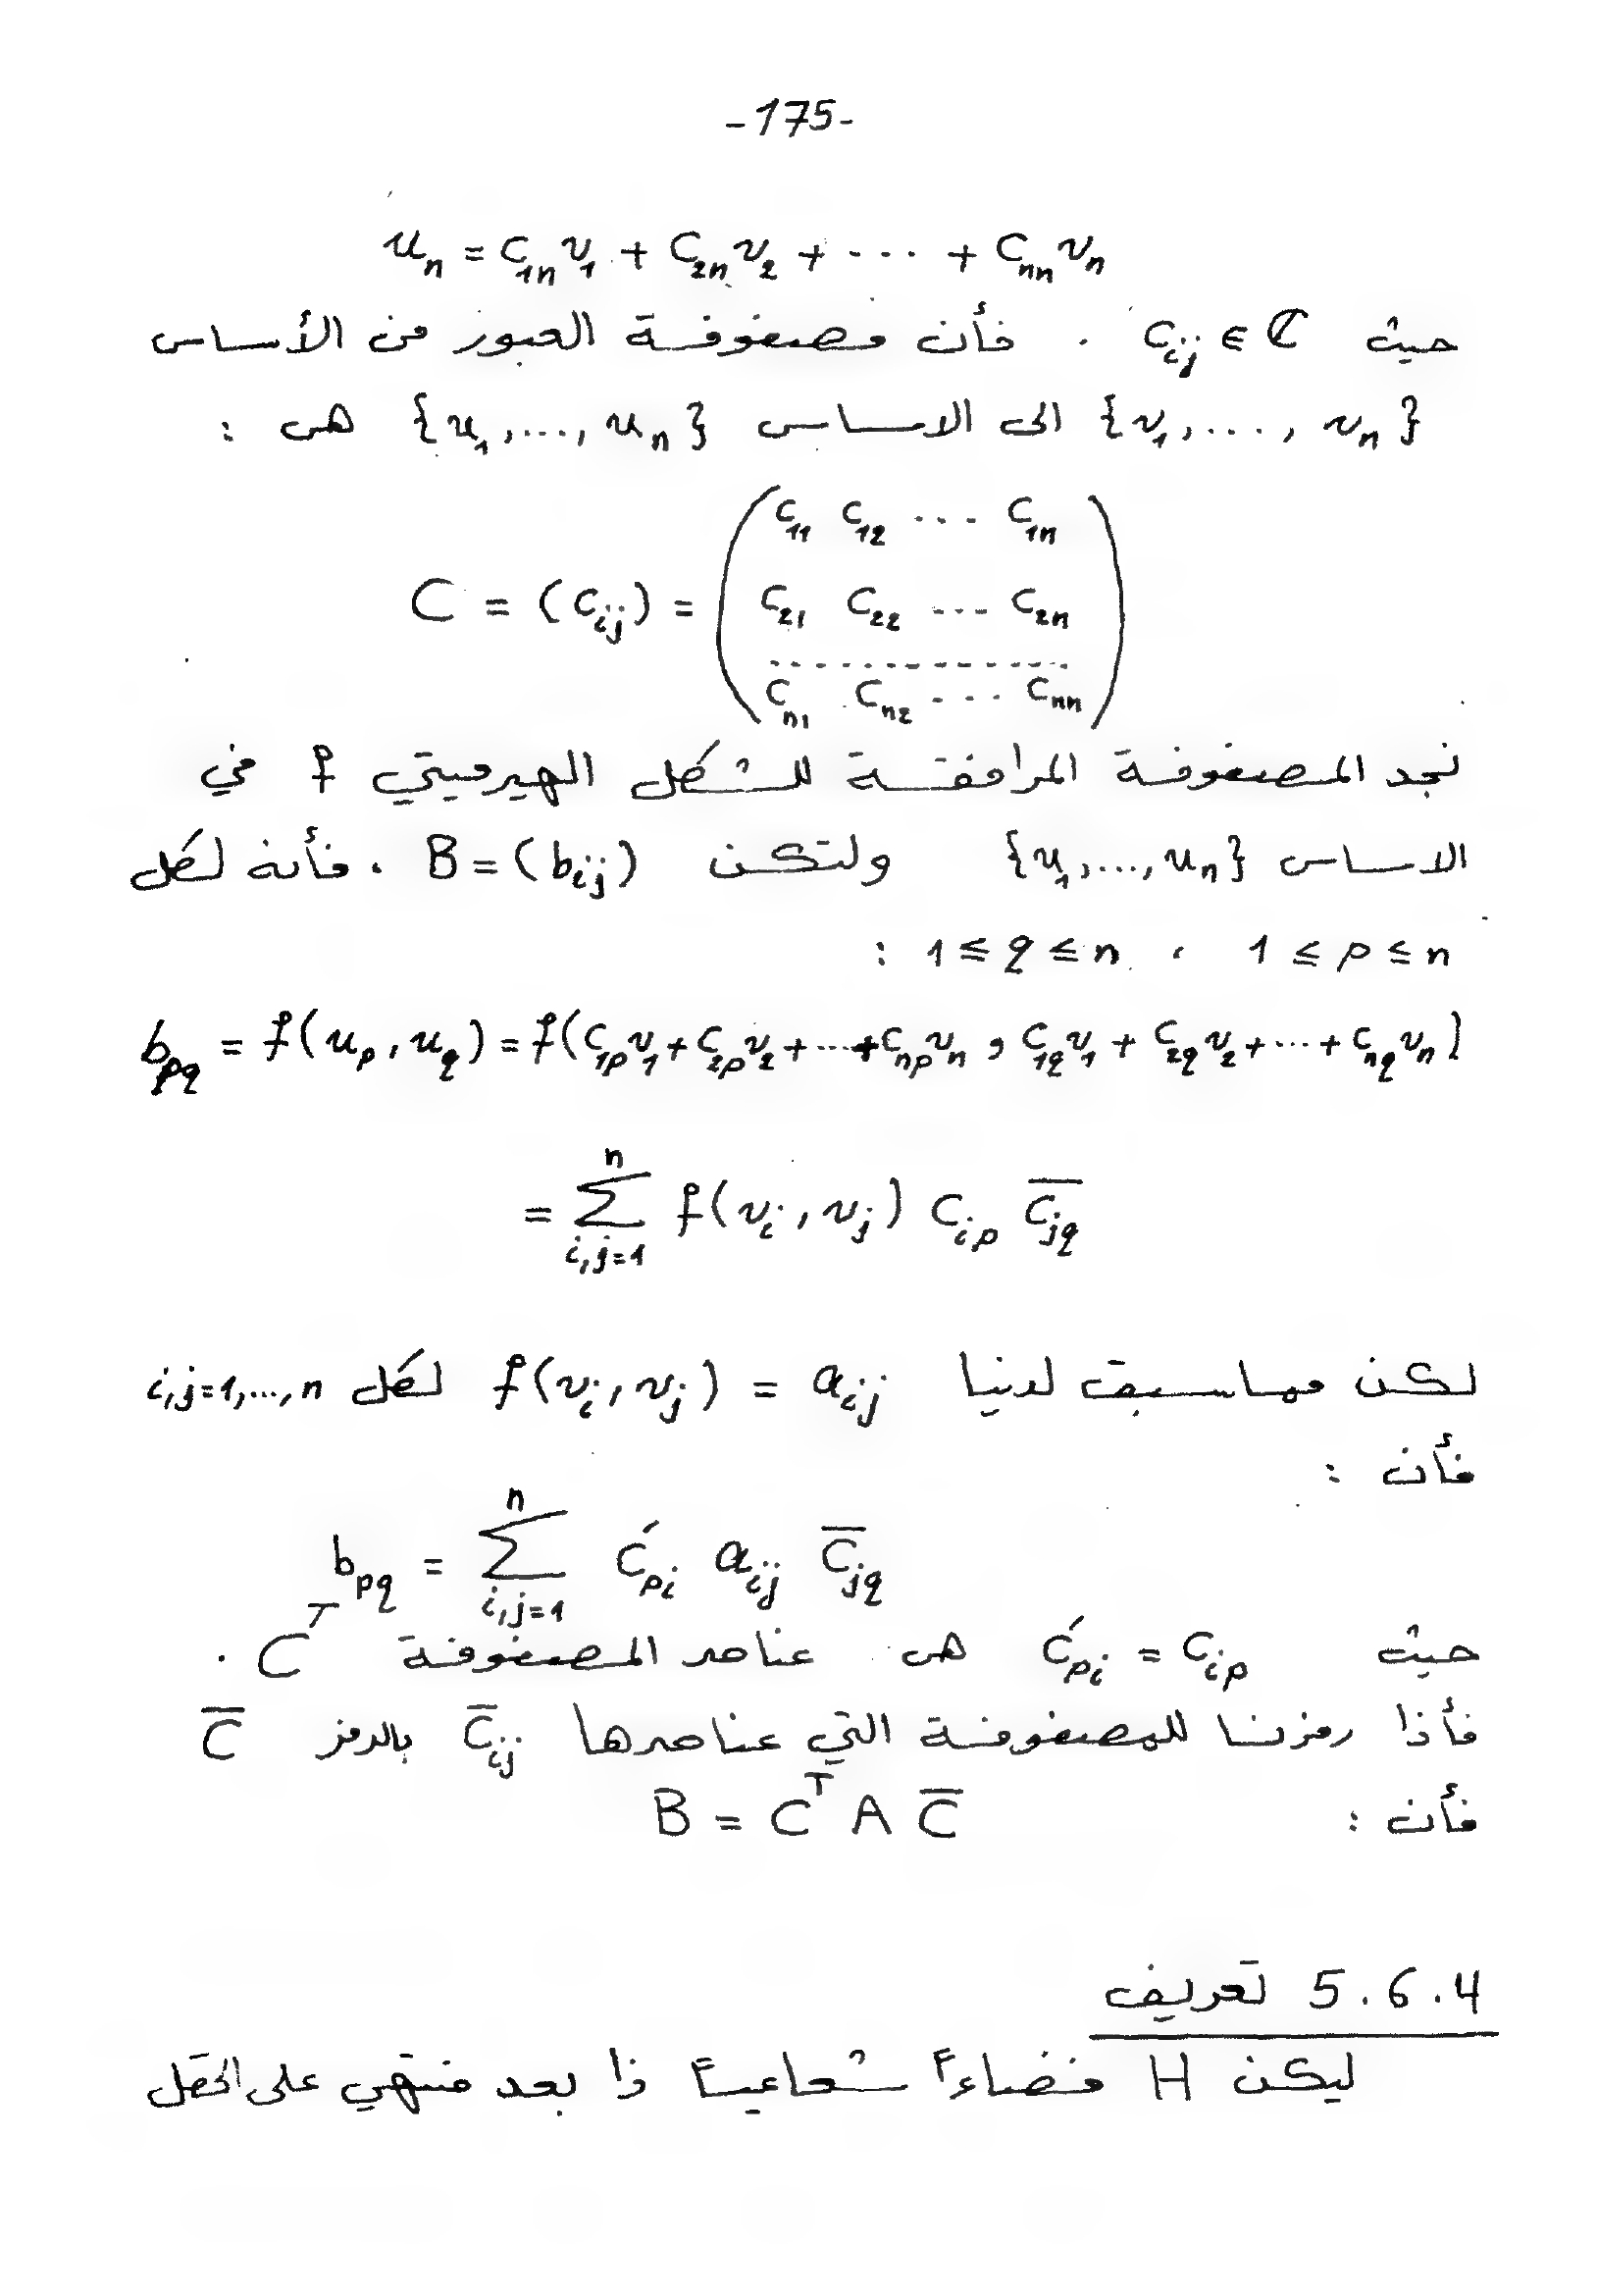 -175-
u_n = c_{1n} v_1 + c_{2n} v_2 + ... + c_{nn} v_n
حيث c_{ij} ∈ ℂ . فأن مصفوفة العبور من الأساس
{v_1, ..., v_n} الى الاساس {u_1, ..., u_n} هي :
C = (c_{ij}) = ( c_{11} c_{12} ... c_{1n}
c_{21} c_{22} ... c_{2n}
.............
c_{n1} c_{n2} ... c_{nn} )
نجد المصفوفة المرافقة للشكل الهيرميتي f في
الاساس {u_1, ..., u_n} ولتكن B = (b_{ij}) . فأنه لكل
1 ≤ p ≤ n ، 1 ≤ q ≤ n :
b_{pq} = f(u_p, u_q) = f(c_{1p} v_1 + c_{2p} v_2 + ... + c_{np} v_n , c_{1q} v_1 + c_{2q} v_2 + ... + c_{nq} v_n)
= \sum_{i,j=1}^{n} f(v_i, v_j) c_{ip} \overline{c_{jq}}
لكن مما سبق لدينا f(v_i, v_j) = a_{ij} لكل i,j=1,...,n
فأن :
b_{pq} = \sum_{i,j=1}^{n} c'_{pi} a_{ij} \overline{c}_{jq}
حيث c'_{pi} = c_{ip} هي عناصر المصفوفة C^T .
فأذا رمزنا للمصفوفة التي عناصرها \overline{c}_{ij} بالرمز \overline{C}
فأن : B = C^T A \overline{C}
5.6.4 تعريف
ليكن H فضاءاً شعاعياً ذا بعد منتهي على الحقل